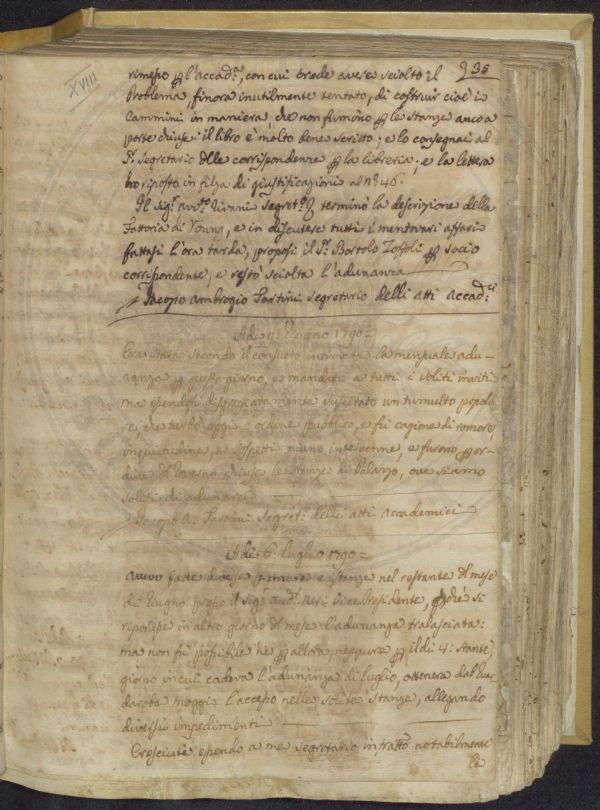 XVIII
35
rimesso p l'accad:a, con cui crede avere sciolto il
Problema, finora inutilmente tentato, di costruir cioè i
Cammini in maniera, che non fumino p le stanze anco a
porte chiuse: il libro è molto bene scritto; e lo consegnai al
Sr. Segretario delle corrispondenze p la libreria; e la lettera
ho riposto in filza di giustificazioni al No. 46.
Il Sigr. Segreto. terminò la descrizione della
Fattoria di Young, e in discutere tutti i mentovari affari
fattasi l'ora tarda, proposi il Sr. Bortolo p socio
corrispondente, e restò sciolta l'adunanza
Jacopo Ambrogio Tartini Segretario delli atti accad:ci
Adì Giugno 1790=
Era stata secondo il consueto intimata la mensuale adu-
nanza p questo giorno, e mandati a tutti i soliti inviti
ma essendosi disgraziatamente suscitato un tumulto popola
re, che turbò oggi l'ordine pubblico, e fu cagione di romore,
inquietudine, e sospetti niuno intervenne, e furono p or-
dine chiuse le stanze di Palazzo, ove siamo
soliti di adunarci
Jacopo A. Tartini Segret: delli atti accademici
Adì: 6: luglio 1790=
Avevo fatte diverse premure e istanze nel restante del mese
di Giugno presso il Sigr. audr. Neri Vice Presidente, pchè si
riponesse in altro giorno del mese l'adunanza tralasciata:
ma non fu possibile nè p allora, neppure p il dì 4: stante
giorno in cui cadeva l'adunanza di luglio, ottenere dal Gua
daroba maggr. l'accesso nelle solite stanze, allegando
diversi impedimenti
Cresciute essendo a me segretario infatto notabilmente
le